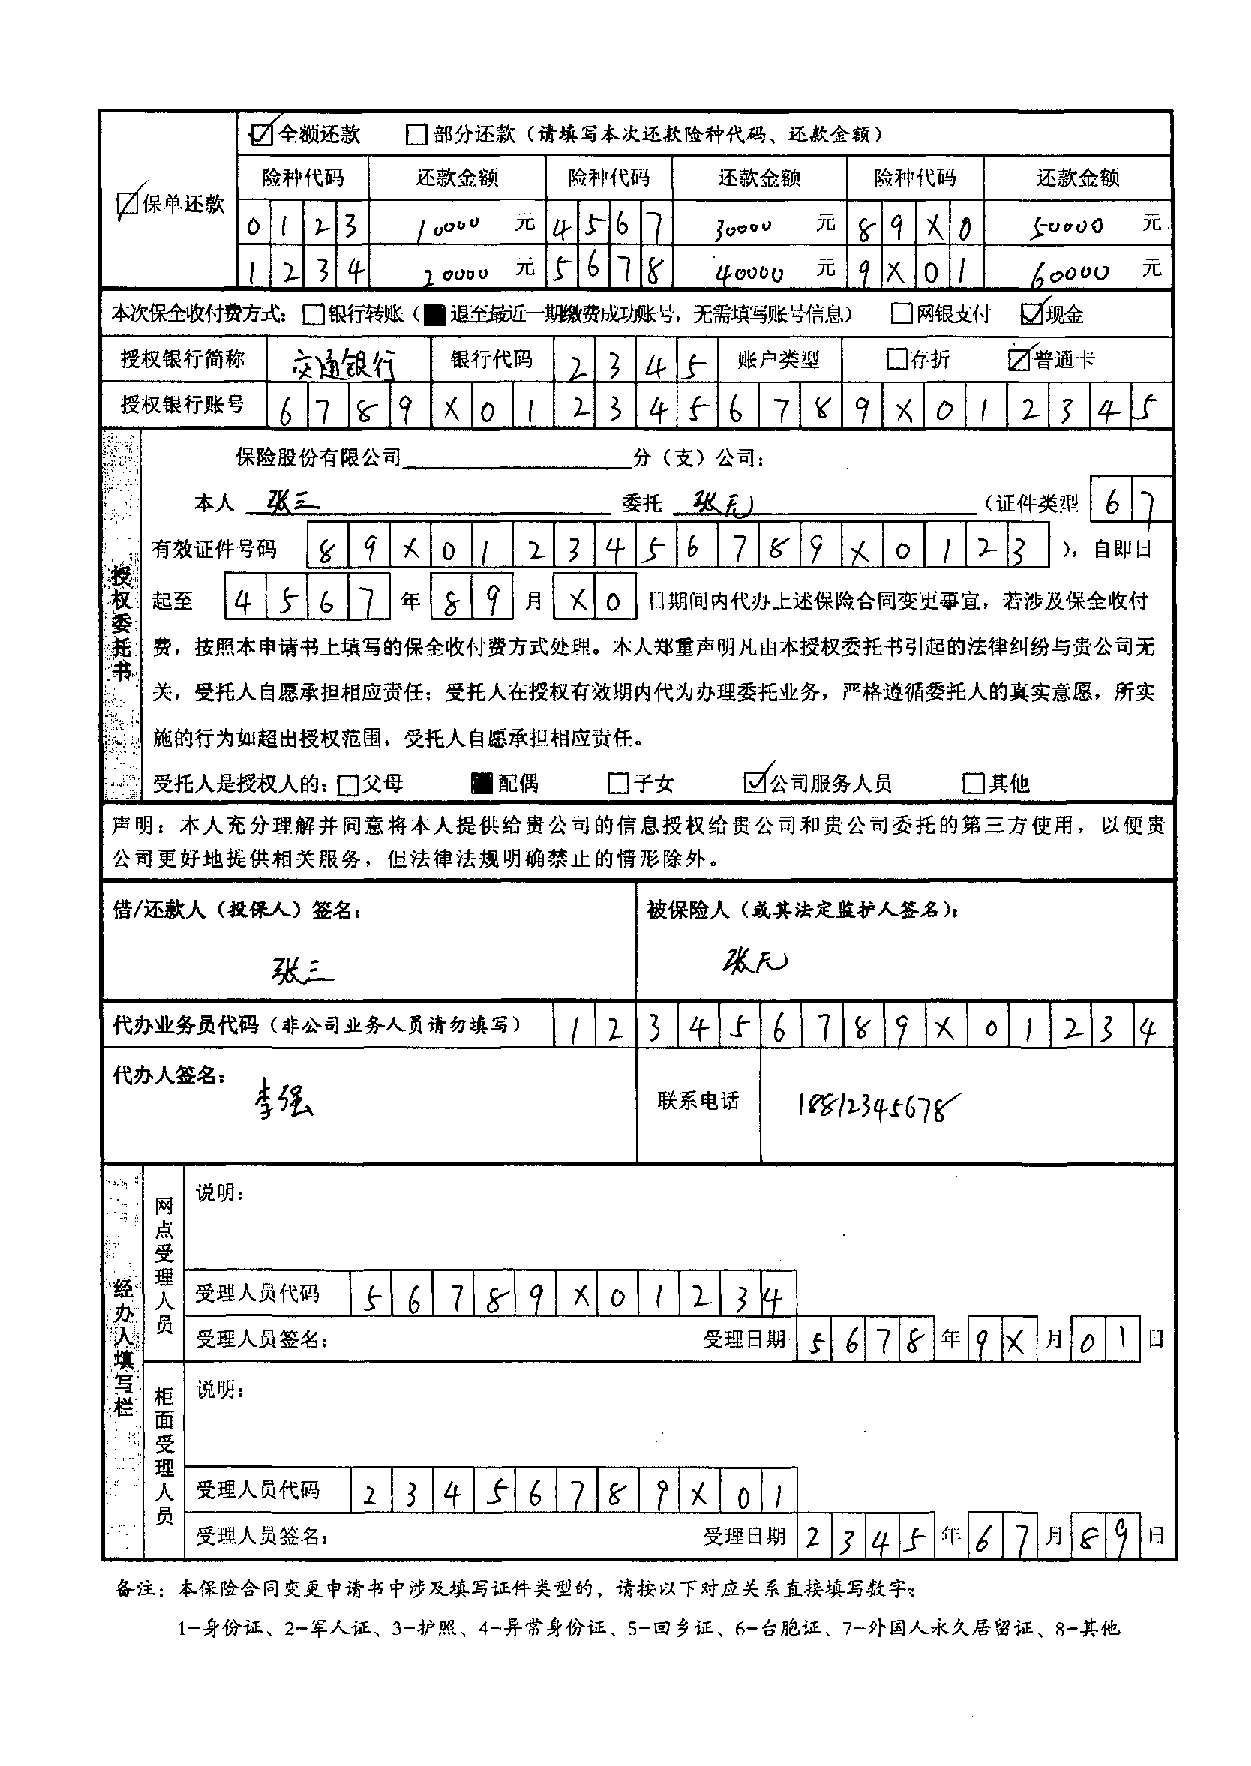 ☑全额还款 ☐部分还款（请填写本次还款险种代码、还款金额）
☑保单还款
险种代码 还款金额 险种代码 还款金额 险种代码 还款金额
0123 10000 元 4567 30000 元 89X0 50000 元
1234 20000 元 5678 40000 元 9X01 60000 元
本次保全收付费方式：☐银行转账（■退至最近一期缴费成功账号，无需填写账号信息） ☐网银支付 ☑现金
授权银行简称 交通银行 银行代码 2345 账户类型 ☐存折 ☑普通卡
授权银行账号 6789X0123456789X012345
授权委托书
保险股份有限公司 分（支）公司：
本人 张三 委托 张元 （证件类型 67
有效证件号码 89X0123456789X0123 ），自即日
起至 4567 年 89 月 X0 日期间内代办上述保险合同变更事宜，若涉及保全收付
费，按照本申请书上填写的保全收付费方式处理。本人郑重声明凡由本授权委托书引起的法律纠纷与贵公司无
关，受托人自愿承担相应责任；受托人在授权有效期内代为办理委托业务，严格遵循委托人的真实意愿，所实
施的行为如超出授权范围，受托人自愿承担相应责任。
受托人是授权人的：☐父母 ■配偶 ☐子女 ☑公司服务人员 ☐其他
声明：本人充分理解并同意将本人提供给贵公司的信息授权给贵公司和贵公司委托的第三方使用，以便贵
公司更好地提供相关服务，但法律法规明确禁止的情形除外。
借/还款人（投保人）签名： 被保险人（或其法定监护人签名）：
张三 张元
代办业务员代码（非公司业务人员请勿填写） 123456789X01234
代办人签名： 李强 联系电话 18812345678
经办人填写栏
网点受理人员
说明：
受理人员代码 56789X01234
受理人员签名： 受理日期 5678 年 9X 月 01 日
柜面受理人员
说明：
受理人员代码 23456789X01
受理人员签名： 受理日期 2345 年 67 月 89 日
备注：本保险合同变更申请书中涉及填写证件类型的，请按以下对应关系直接填写数字：
1-身份证、2-军人证、3-护照、4-异常身份证、5-回乡证、6-台胞证、7-外国人永久居留证、8-其他